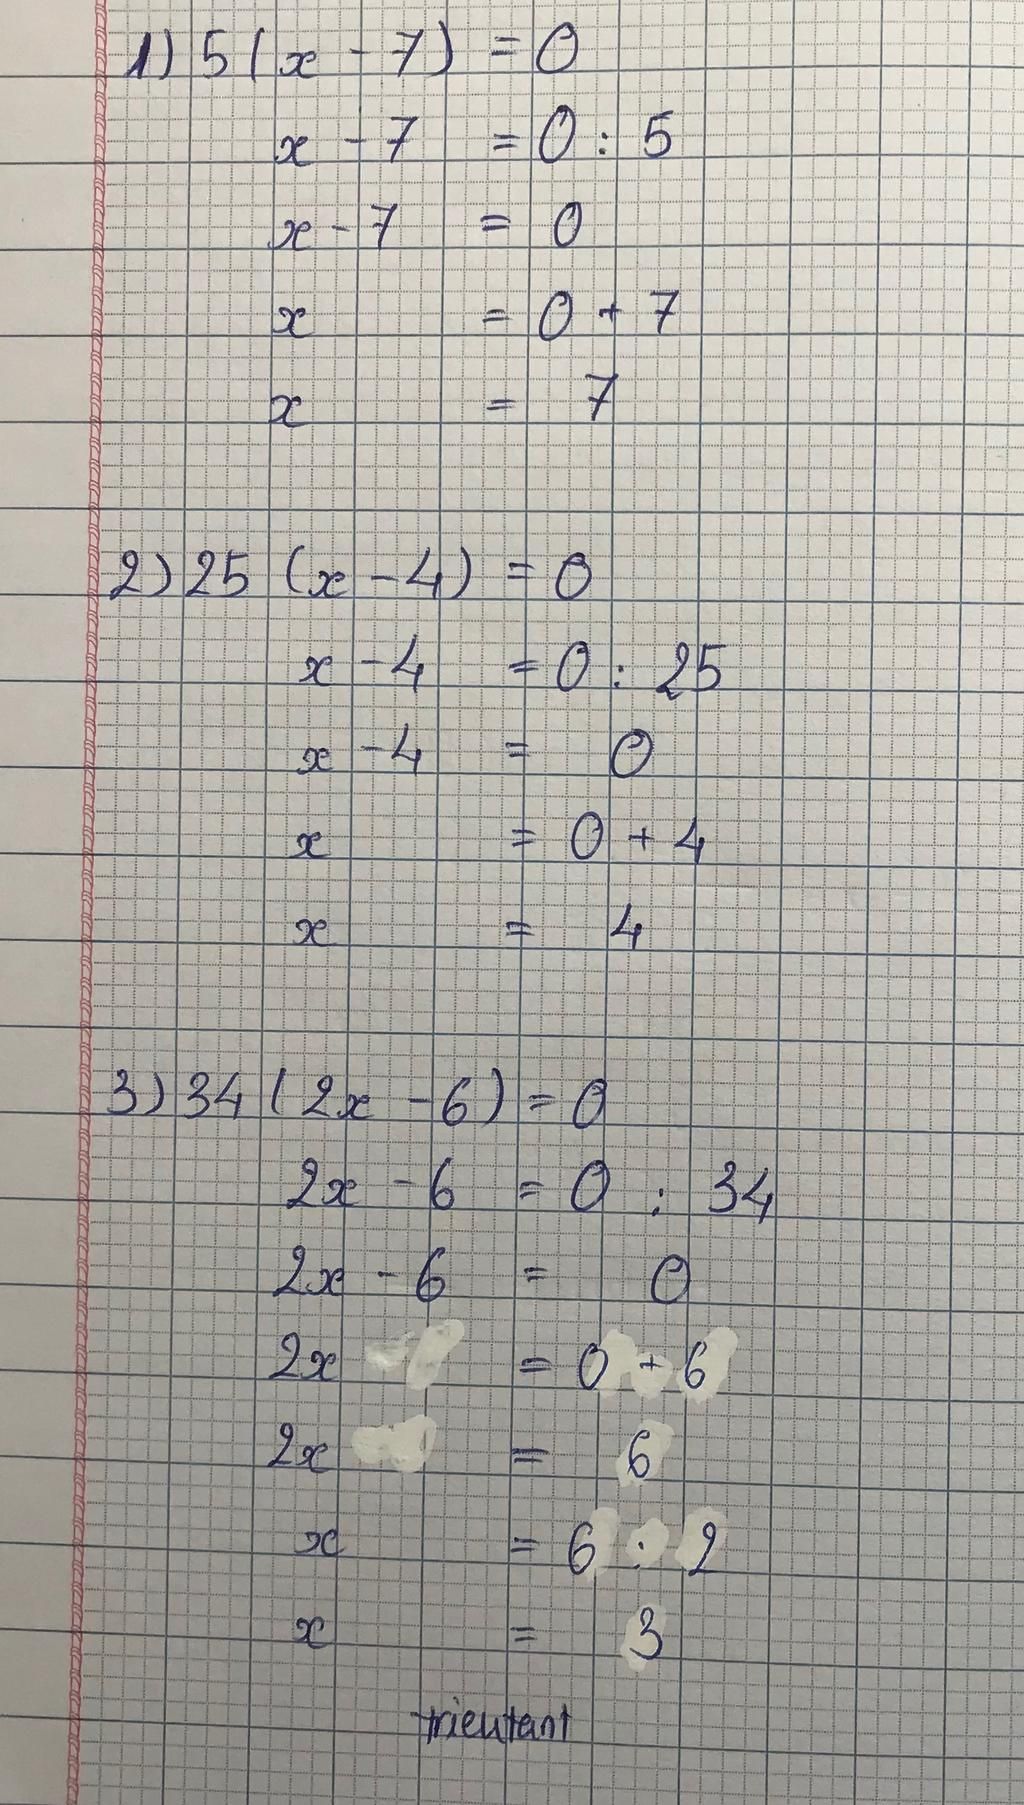 1) 5 ( x - 7 ) = 0
x - 7 = 0 : 5
x - 7 = 0
x = 0 + 7
x = 7
2) 25 (x - 4) = 0
x - 4 = 0 : 25
x - 4 = 0
x = 0 + 4
x = 4
3) 34 ( 2x - 6 ) = 0
2x - 6 = 0 : 34
2x - 6 = 0
2x = 0 + 6
2x = 6
x = 6 : 2
x = 3
trieutant